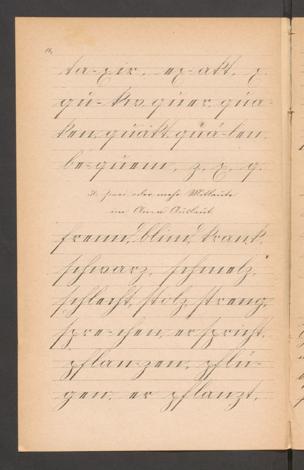 ta-xir, ex-akt, x.
qu- ku, quer, qua-
ken, quakt, quä-len,
be-quem, z. x. q.
zwei oder mehr Mitlaute
im An- u Auslaut
fremd, blind, krank,
schwarz, schmelz,
schlecht, stolz, streng,
spre-chen, er spricht,
pflan-zen, pflü-
gen, er pflanzt.